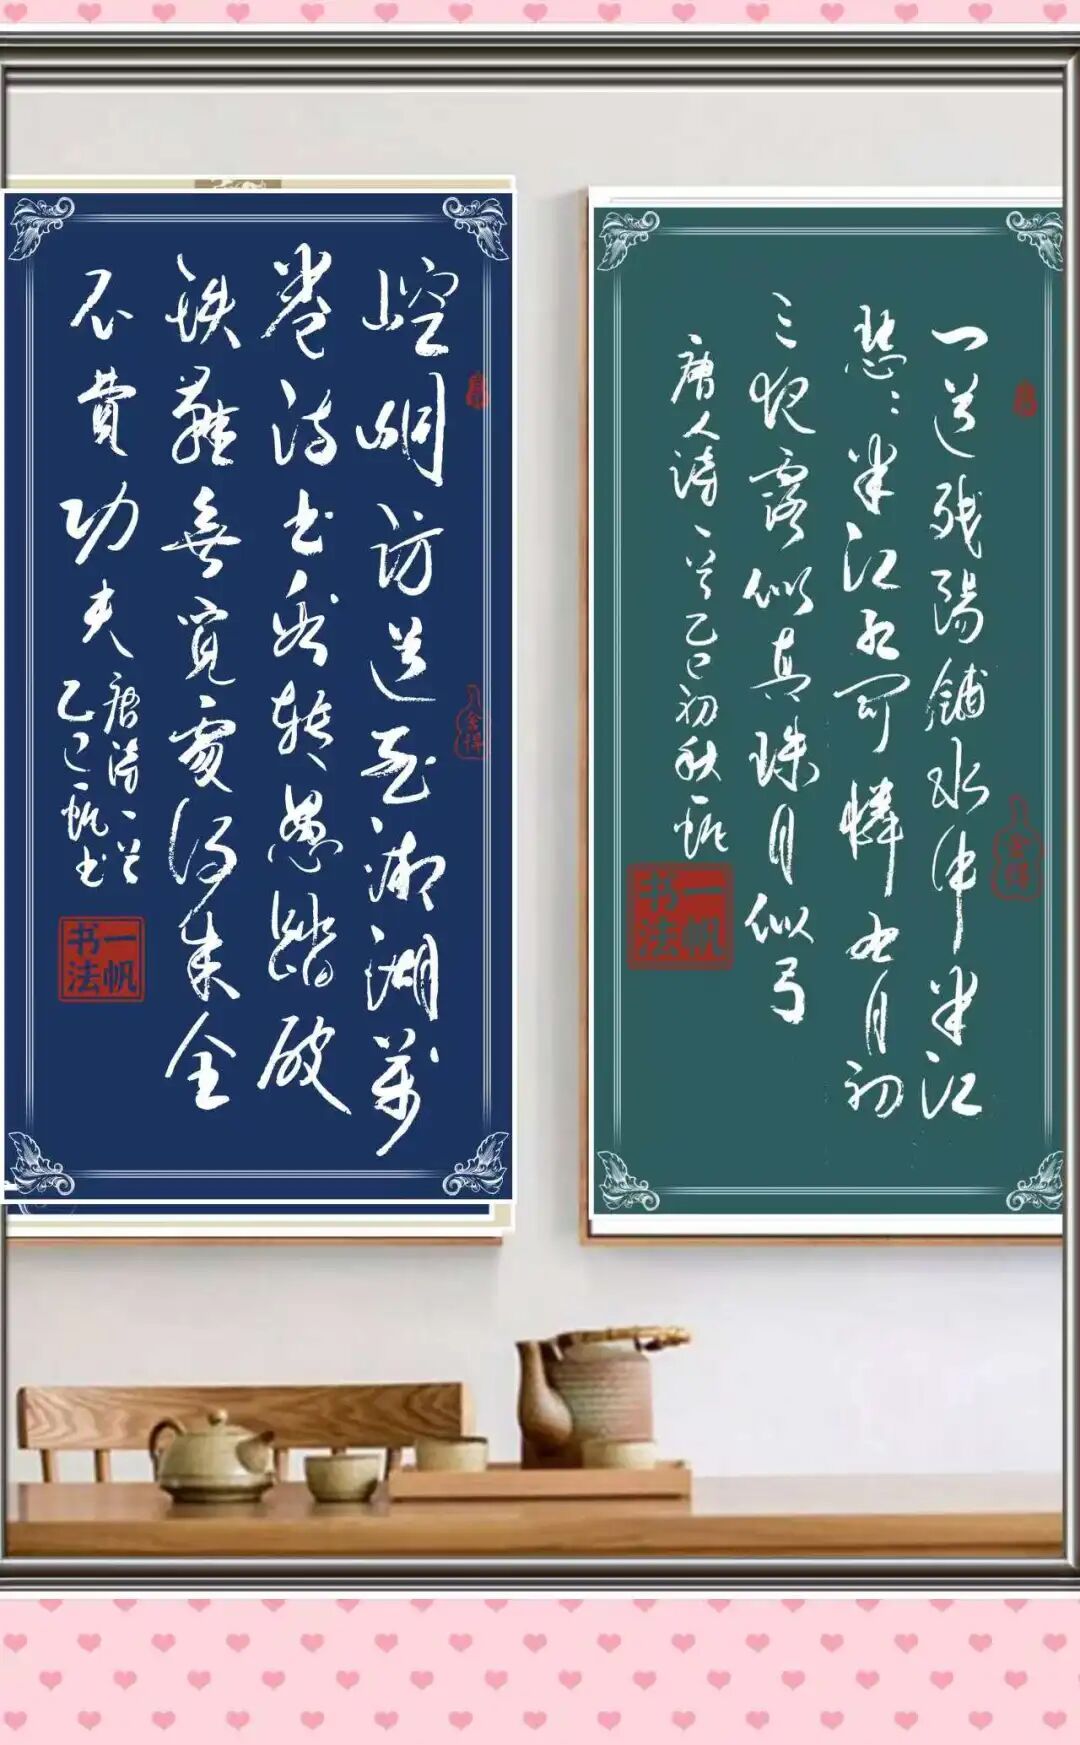 一道残陽鋪水中半江
瑟々半江红可憐九月初
三夜露似真珠月似弓
唐人诗一首乙巳初秋一帆
舍得
一帆书法
崆峒访道至湘湖萬
卷诗书看转愚踏破
铁鞋無覓處得来全
不費功夫
唐诗一首
乙巳一帆书
舍得
一帆书法